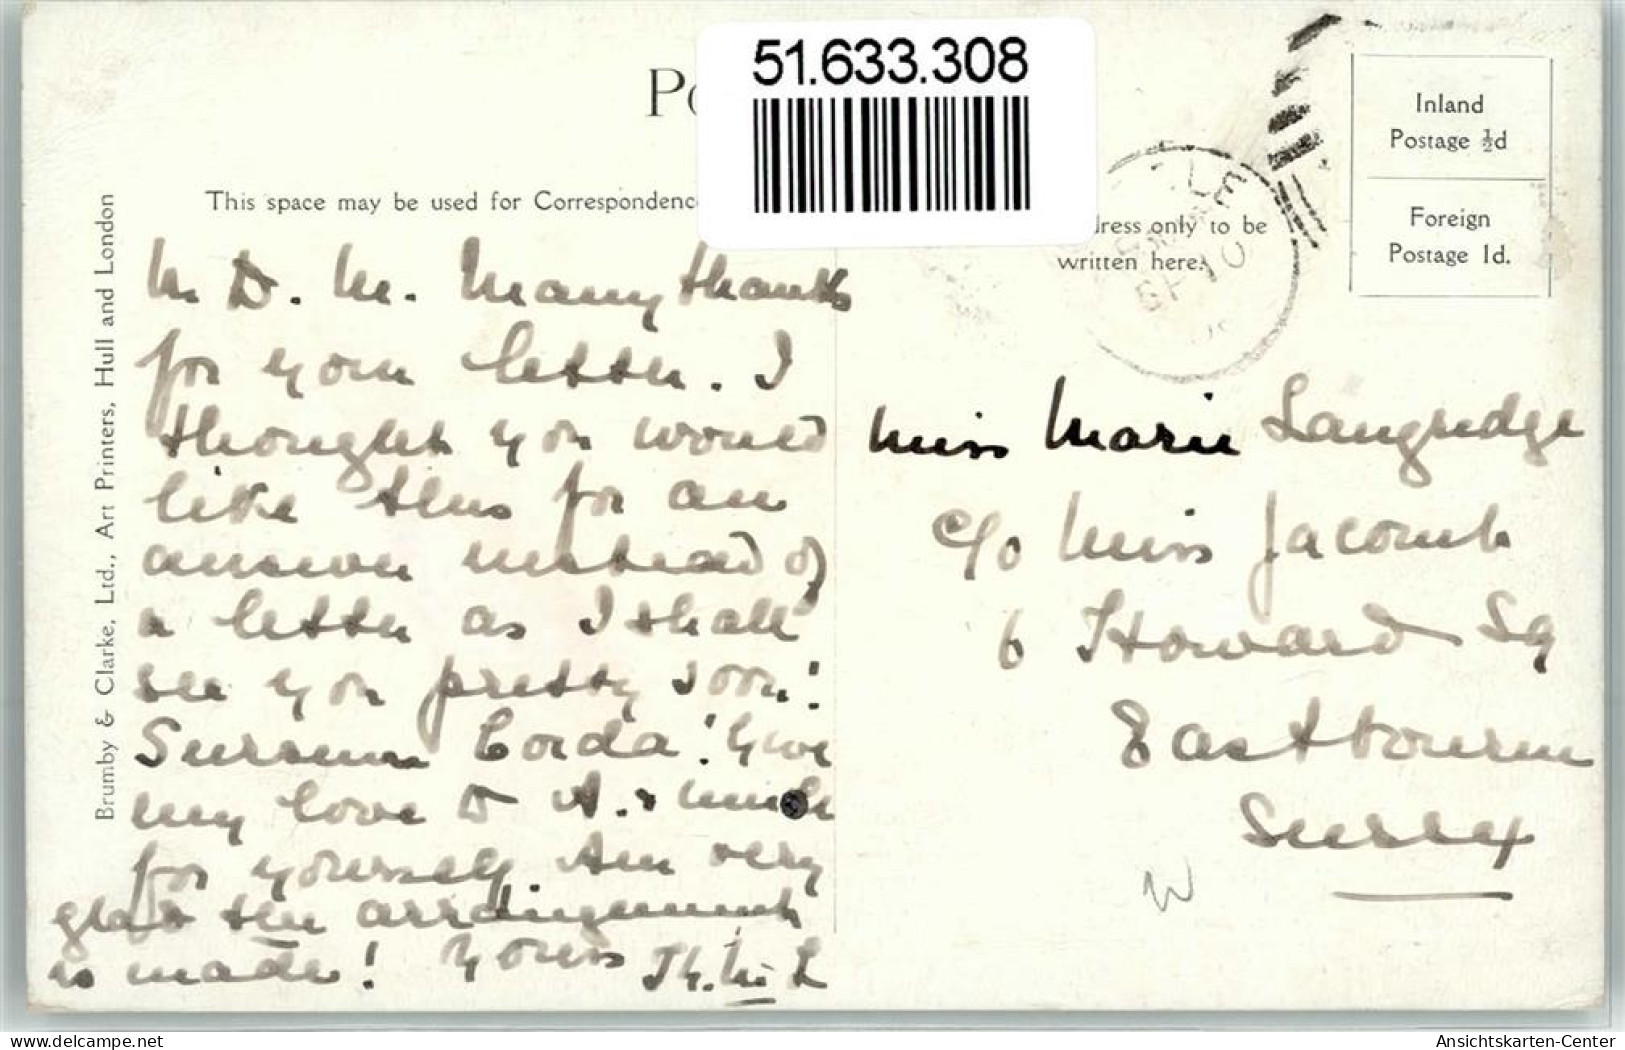 51.633.308
Po
Inland
Postage ½d
Foreign
Postage 1d.
This space may be used for Correspondenc
dress only to be
written here.
Brumby & Clarke, Ltd., Art Printers, Hull and London
M. D. M. Many thanks
for your letter. I
thought you would
like this for an
answer instead of
a letter as I shall
see you pretty soon!
Sursum Corda! Give
my love to A. & much
for yourself. Am very
glad the arrangement
is made! Yours Th. M. L
Miss Marie Langridge
c/o Miss Jacomb
6 Howard Sq
Eastbourne
Sussex
W
delcampe.net
Ansichtskarten-Center